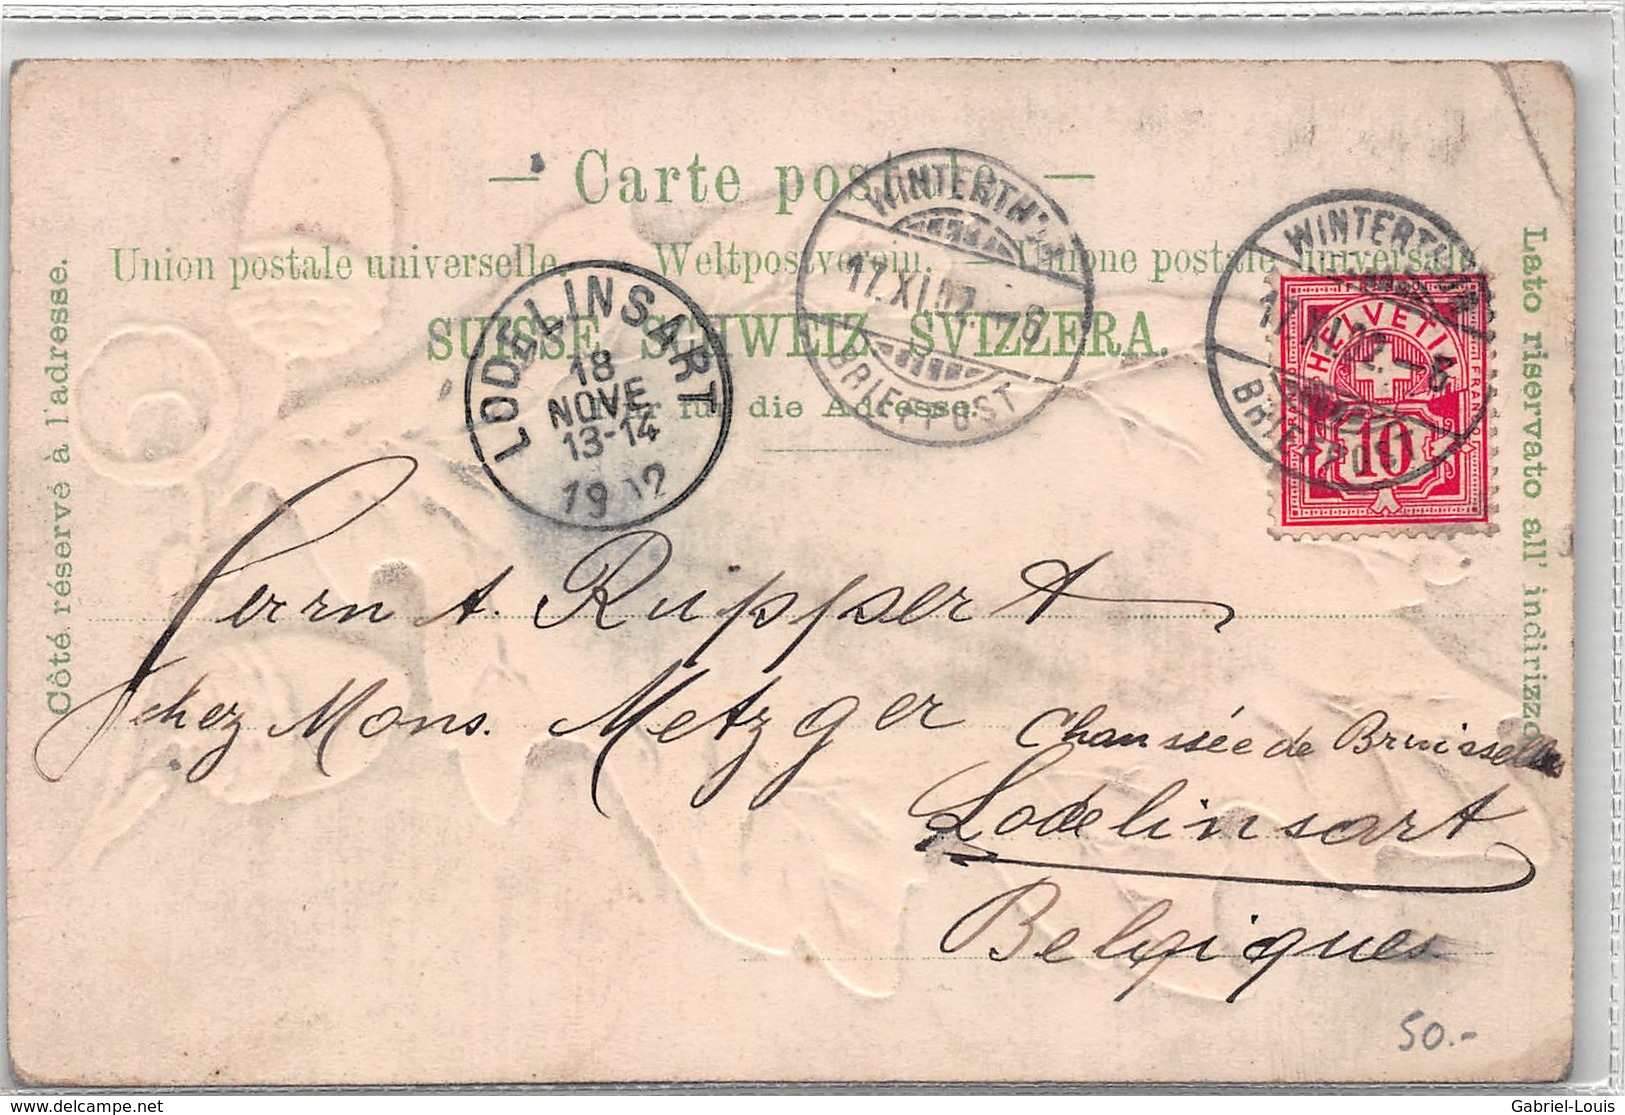 — Carte postale. —
Union postale universelle. — Weltpostverein. — Unione postale universale
SUISSE. SCHWEIZ. SVIZZERA.
Nur für die Adresse.
Côté réservé à l'adresse.
Lato riservato all' indirizzo
LODELINSART
18
NOVE
13-14
1902
WINTERTHUR
17.XI.02.—6
BRIEFPOST
WINTERTHUR
17.XI.02.—6
BRIEFPOST
HELVETIA
FRANCO
10
Herrn A. Ruppert
chez Mons. Metzger
Chaussée de Bruisselles
Lodelinsart
Belgiques
50.-
delcampe.net
Gabriel-Louis